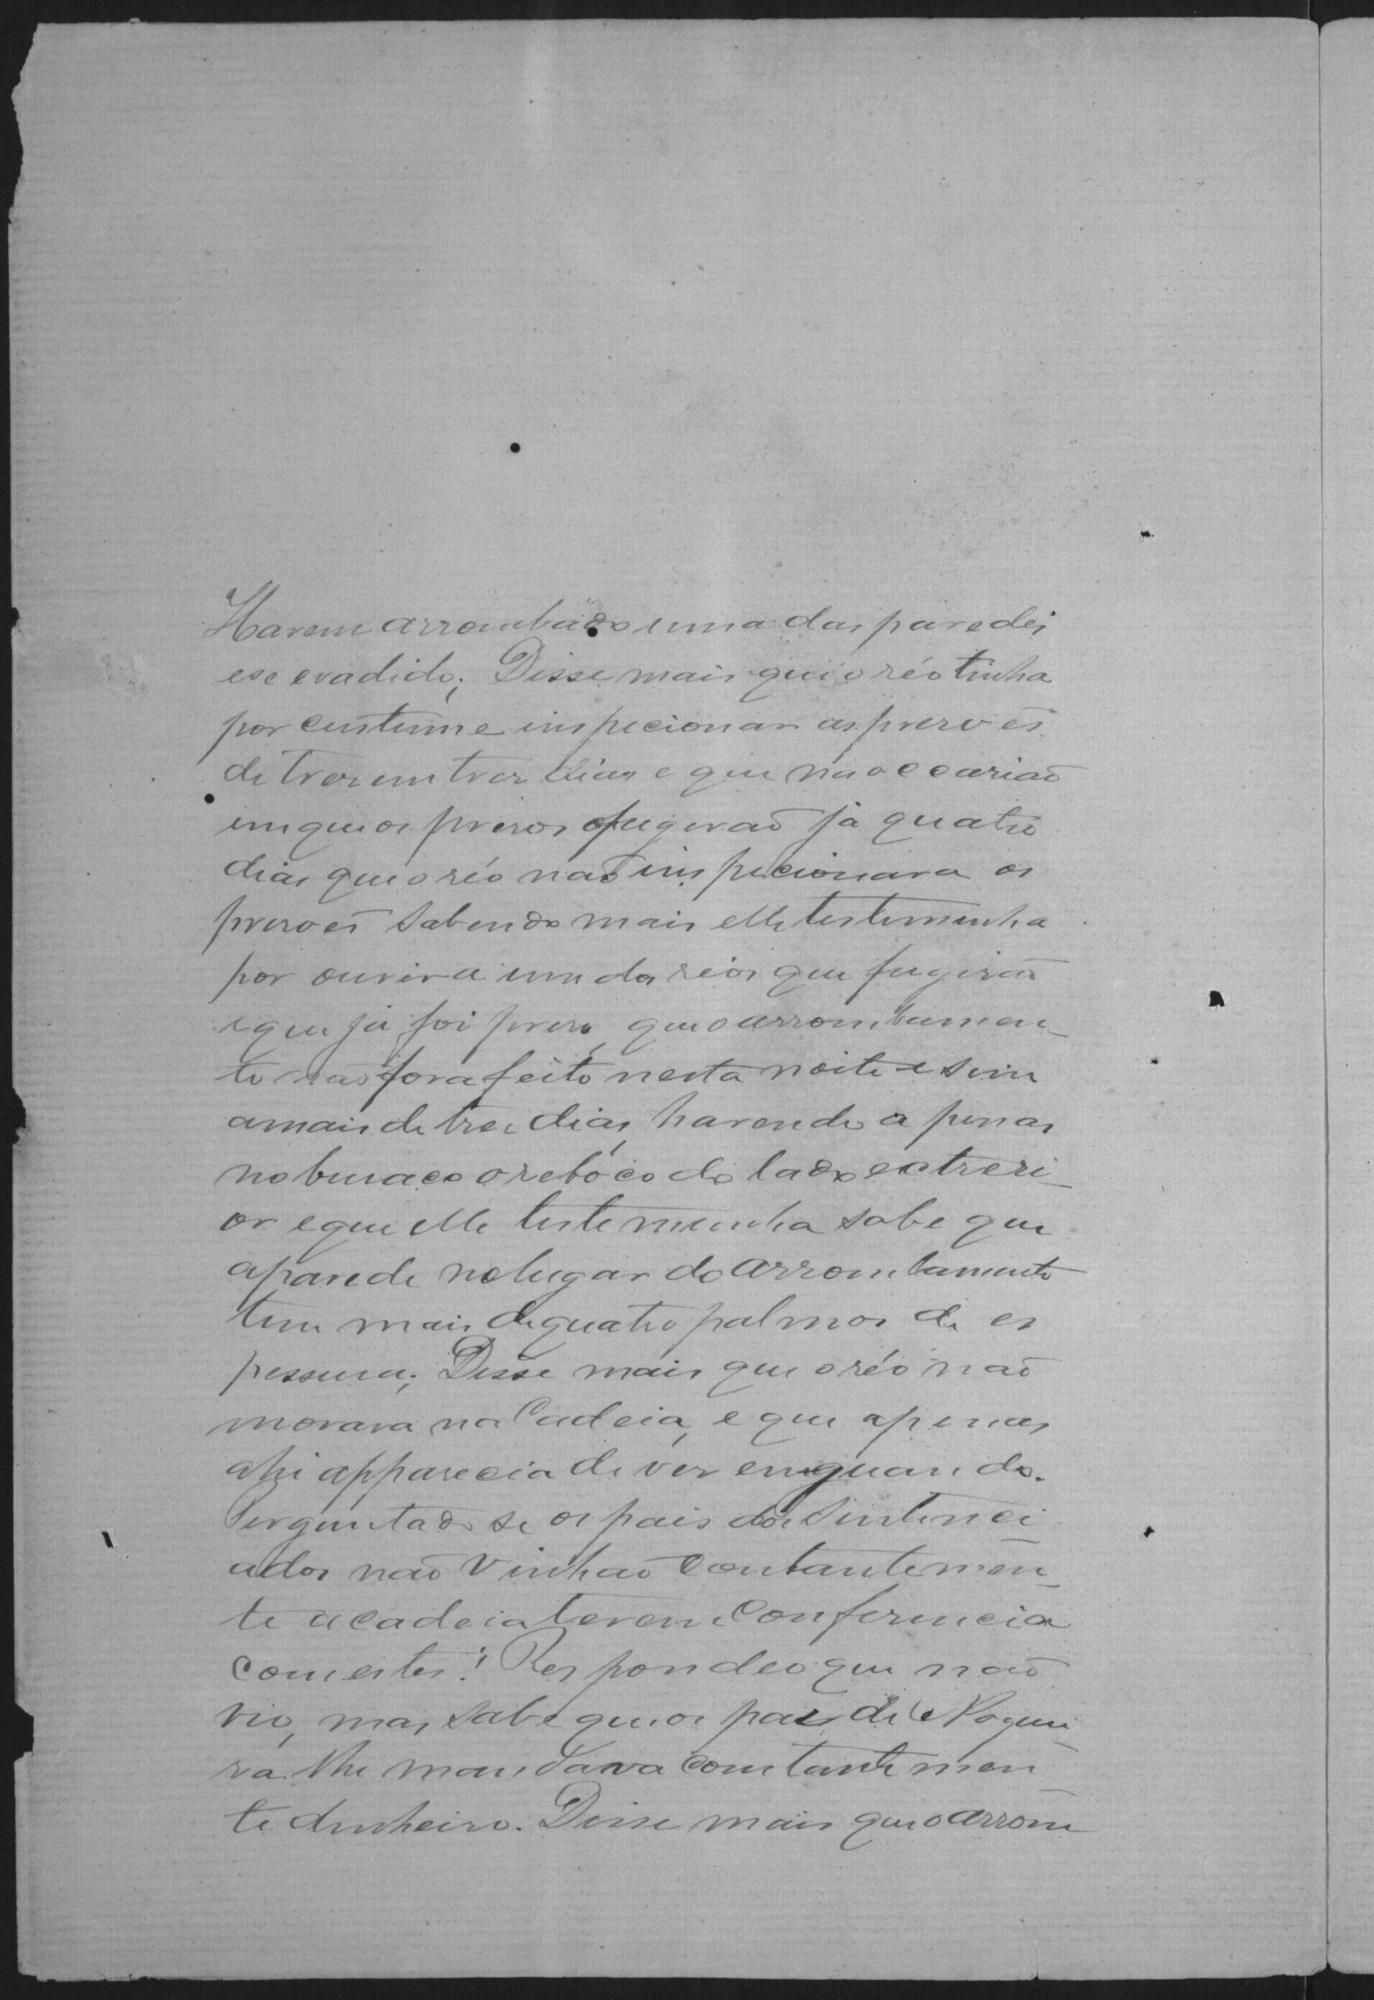 Harem arrombado uma das paredes
e se evadido; Disse mais que o réo tinha
por custume inspecionar as prezoẽs
de trez em trez dias e que na occasiaõ
em que os prezos fugiraõ já quatro
dias que o réo naõ inspecionara as
prezoẽs sabendo mais elle testemunha
por ouvir a um dos reos que fugiraõ
e que já foi prezo, que o arrombamen-
to naõ fora feito nesta noite e sim
a mais de tres dias, havendo a penas
no buraco o rebóco do lado extreri-
or e que elle testemunha sabe que
a parede no lugar do arrombamento
tem mais de quatro palmos de es
pessura; Disse mais que o réo naõ
morava na Cadeia, e que apenas
ahi apparecia de vez em quando.
Perguntado se os pais dos Sintenci
ados naõ vinhaõ contantemen-
te a cadeia terem conferencia
com estes! Respondeo que naõ
vio, mas sabe que os pais de Noguei
ra lhe mandava constantemen
te dinheiro. Disse mais que o arrom